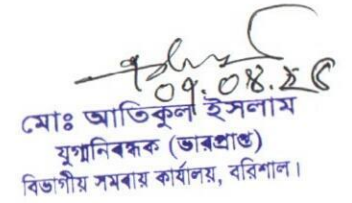 ০৭.০৪.২৫
মোঃ আতিকুল ইসলাম
যুগ্মনিবন্ধক (ভারপ্রাপ্ত)
বিভাগীয় সমবায় কার্যালয়, বরিশাল।